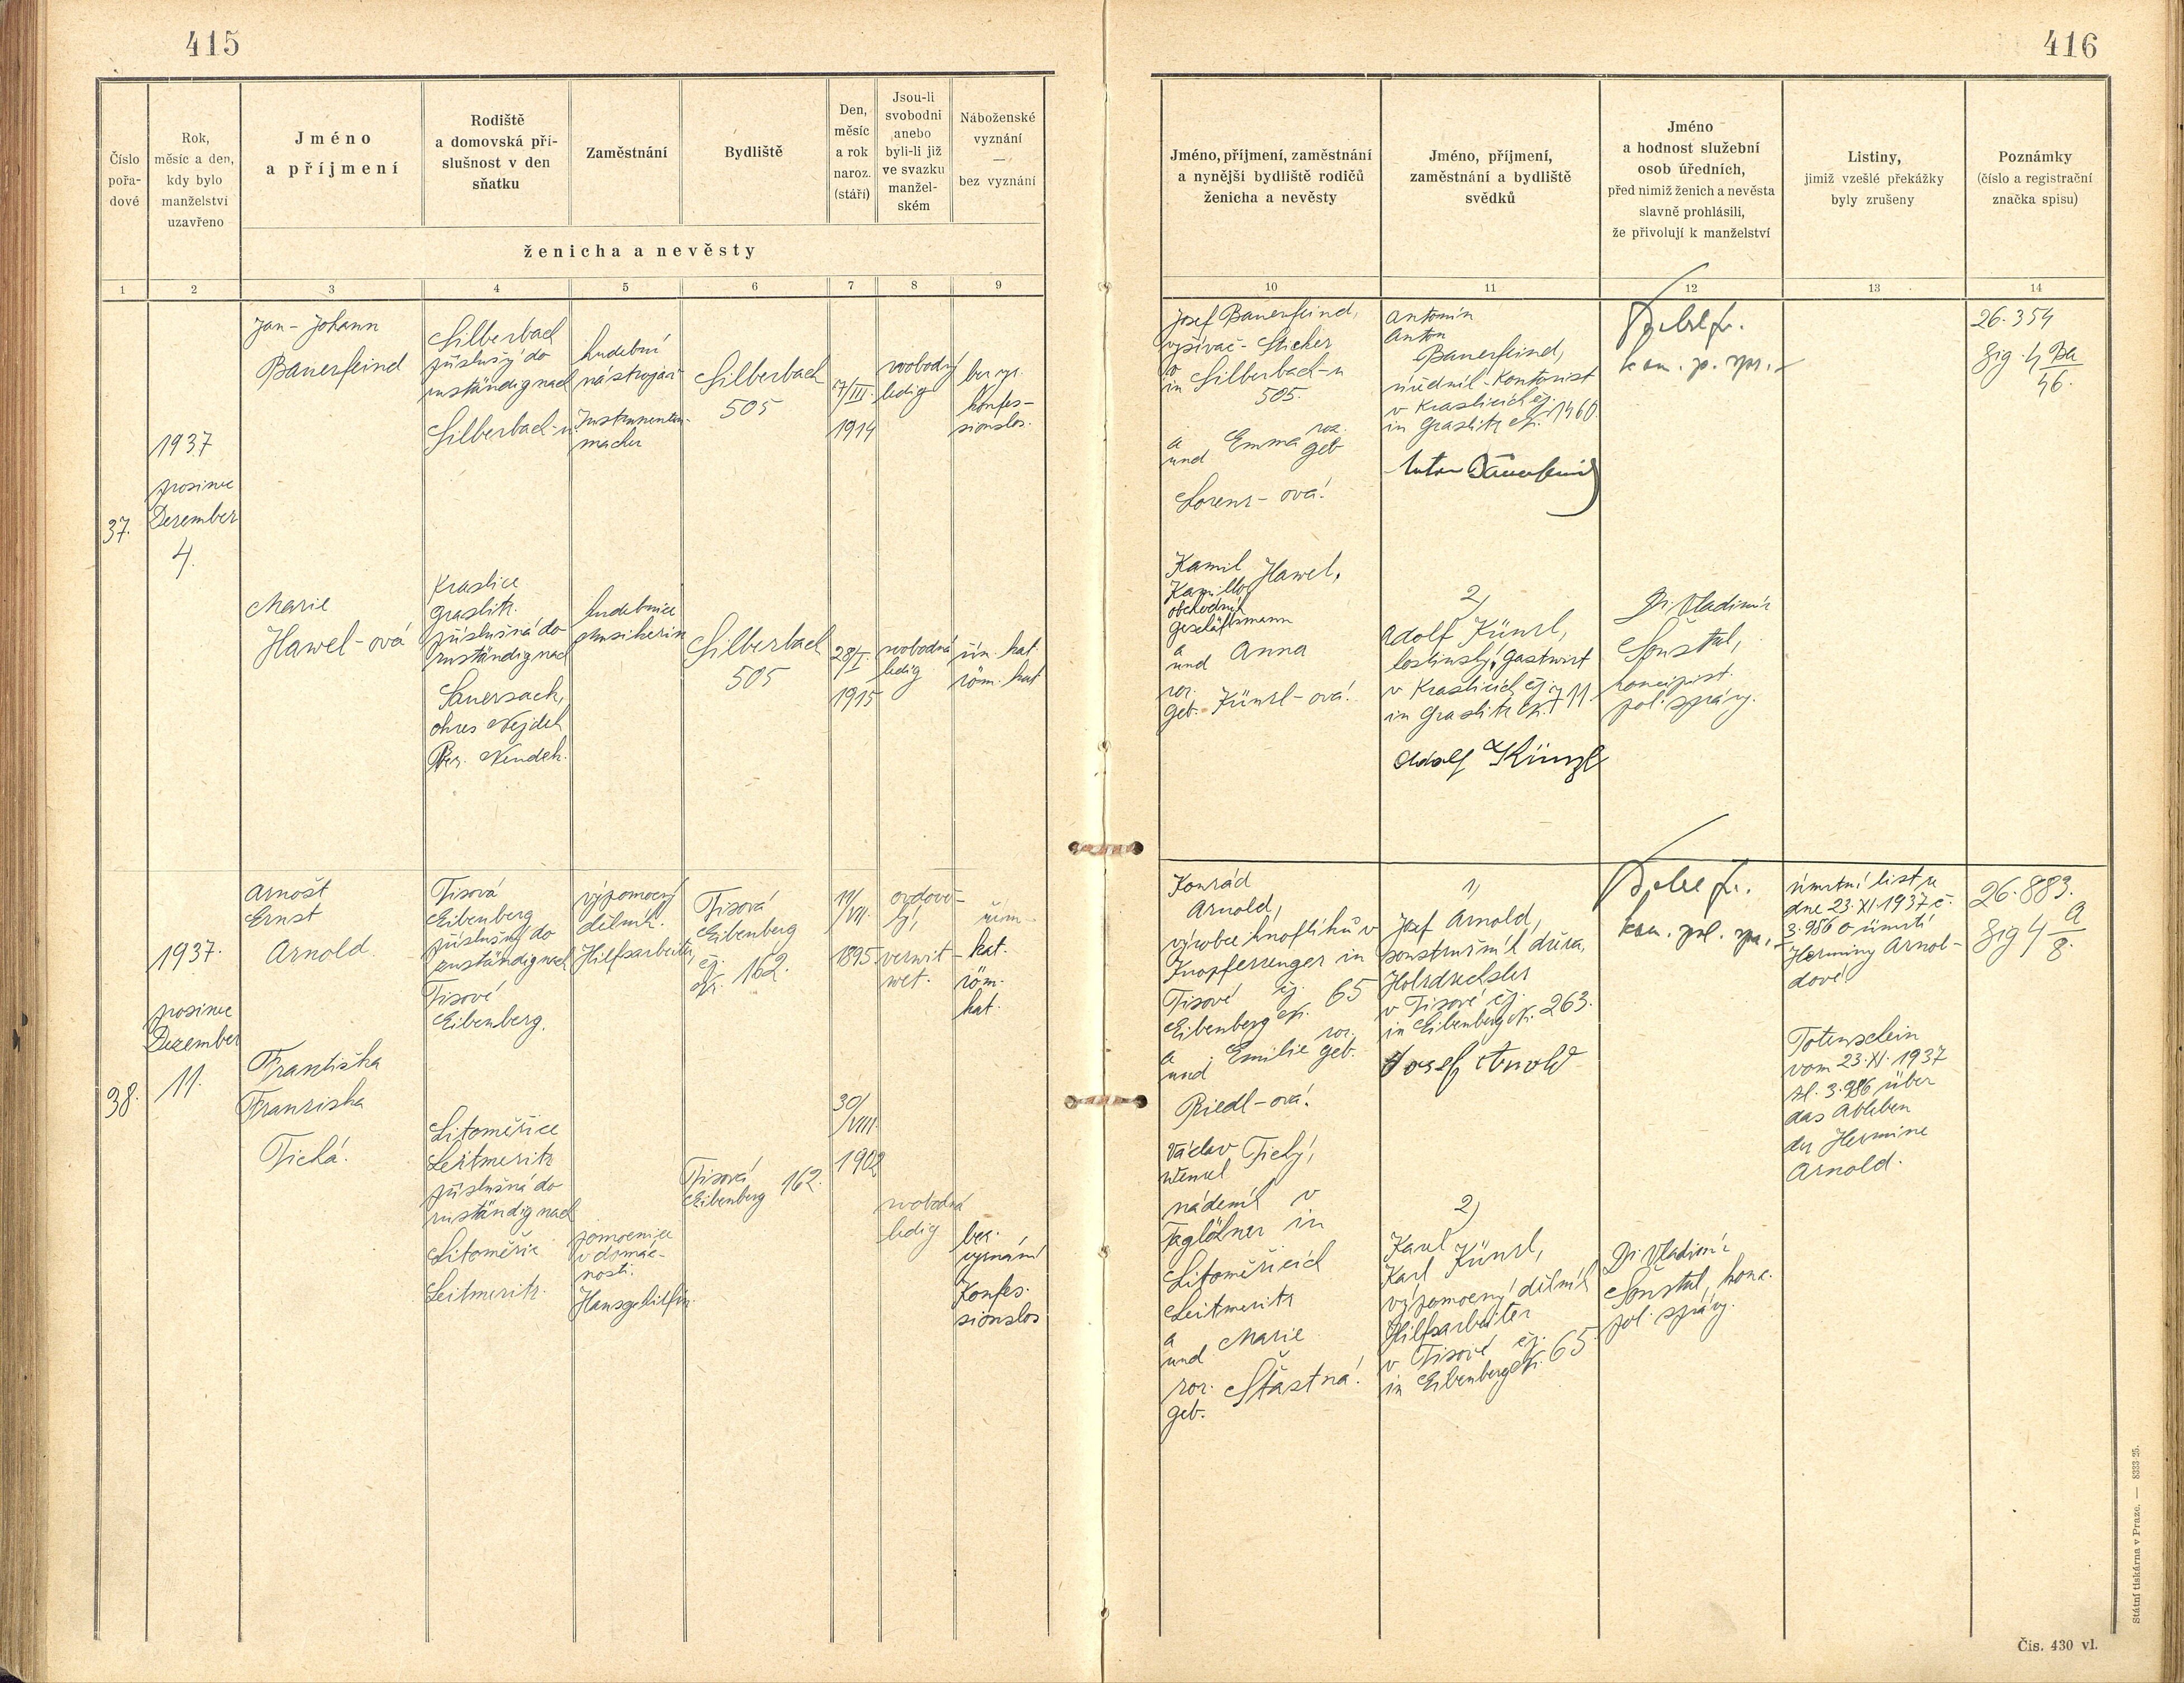 415
Číslo
pořa-
dové
Rok,
měsíc a den,
kdy bylo
manželství
uzavřeno
Jméno
a příjmení
Rodiště
a domovská pří-
slušnost v den
sňatku
Zaměstnání
Bydliště
Den,
měsíc
a rok
naroz.
(stáří)
Jsou-li
svobodni
anebo
byli-li již
ve svazku
manžel-
ském
Náboženské
vyznání
—
bez vyznání
ženicha a nevěsty
1 2 3 4 5 6 7 8 9
37.
1937
prosinec
Dezember
4.
Jan - Johann
Bauerfeind
Silberbach
příslušný do
zuständig nach
Silberbach-u
hudební
nástrojař
Instrumenten-
macher
Silberbach
505
17/III.
1914
svobodný
ledig
bez vyz.
konfes-
sionslos.
Marie
Hawel-ová
Kraslice
Graslitz.
příslušná do
zuständig nach
Sauersack,
okres Nejdek
Bez. Neudek.
hudebnice
Musikerin
Silberbach
505
28/I.
1915
svobodná
ledig
řím. kat.
röm. kat
38.
1937.
prosinec
Dezember
11.
Arnošt
Ernst
Arnold.
Tisová
Eibenberg
příslušný do
zuständig nach
Tisové
Eibenberg.
výpomocný
dělník.
Hilfsarbeiter,
Tisová
Eibenberg
čj.
čp. 162.
11/VII.
1895
ovdově-
lý,
verwit-
wet.
řím-
kat.
röm.
kat.
Františka
Franziska
Tichá.
Litoměřice
Leitmeritz
příslušná do
zuständig nach
Litoměřic
Leitmeritz.
pomocnice
v domác-
nosti.
Hausgehilfin
Tisová
Eibenberg 162.
30/VIII.
1902
svobodná
ledig
bez.
vyznání
Konfes-
sionslos
416
Jméno, příjmení, zaměstnání
a nynější bydliště rodičů
ženicha a nevěsty
Jméno, příjmení,
zaměstnání a bydliště
svědků
Jméno
a hodnost služební
osob úředních,
před nimiž ženich a nevěsta
slavně prohlásili,
že přivolují k manželství
Listiny,
jimiž vzešlé překážky
byly zrušeny
Poznámky
(číslo a registrační
značka spisu)
10 11 12 13 14
Josef Bauerfeind,
vyšívač - Sticker
v
in Silberbach-u
505.
a
und Emma roz.
geb
Lorenz - ová.
Antonín
Anton
Bauerfeind,
úředník - Kontorist
v Kraslicích čj.
in Graslitz čp. 1460.
Anton Bauerfeind
kom. p. spr.
26.354
Sig. 4 Ba/46.
Kamil
Kamillo Hawel,
obchodník
Geschäftsmann
a
und Anna
roz.
geb. Künzl-ová.
2)
Adolf Künzl,
hostinský, Gastwirt
v Kraslicích čj.
in Graslitz čp. 711.
Adolf Künzl
Dr. Vladimír
Šoustal,
koncipist.
pol. správy.
Konrád
Arnold,
výrobce knoflíků v
Knopferzeuger in
Tisové čj.
Eibenberg čp. 65
a
und Emilie roz.
geb.
Riedl-ová.
1)
Josef Arnold,
soustružník dřeva,
Holzdrechsler
v Tisové čj.
in Eibenberg čp. 263.
Josef Arnold
kom. pol. spr.
Úmrtní list ze
dne 23.XI.1937 č.
3.986 o úmrtí
Herminy Arnol-
dové.
Totenschein
vom 23.XI.1937
Zl. 3.986 über
das Ableben
der Hermine
Arnold.
26.883.
Sig 4 A/8.
Václav
Wenzel Tichý,
nádeník v
Taglöhner in
Litoměřicích
Leitmeritz
a
und Marie
roz.
geb. Šťastná.
2)
Karel
Karl Künzl,
výpomocný dělník
Hilfsarbeiter
v Tisové čj.
in Eibenberg čp. 65
Dr. Vladimír
Šoustal, konc.
pol. správy.
Státní tiskárna v Praze. — 8333-25.
Čís. 430 vl.